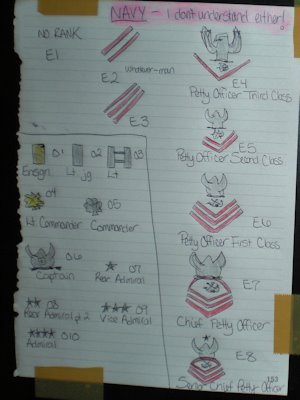 NAVY - I don't understand either!
NO RANK
E1
E2
whatever-man
E3
E4
Petty Officer Third Class
E5
Petty Officer Second Class
E6
Petty Officer First Class
E7
Chief Petty Officer
E8
Senior Chief Petty Officer
01
Ensign
02
Lt jg
03
Lt
04
Lt. Commander
05
Commander
06
Captain
07
Rear Admiral
08
Rear Admiral pt 2
09
Vice Admiral
010
Admiral
153